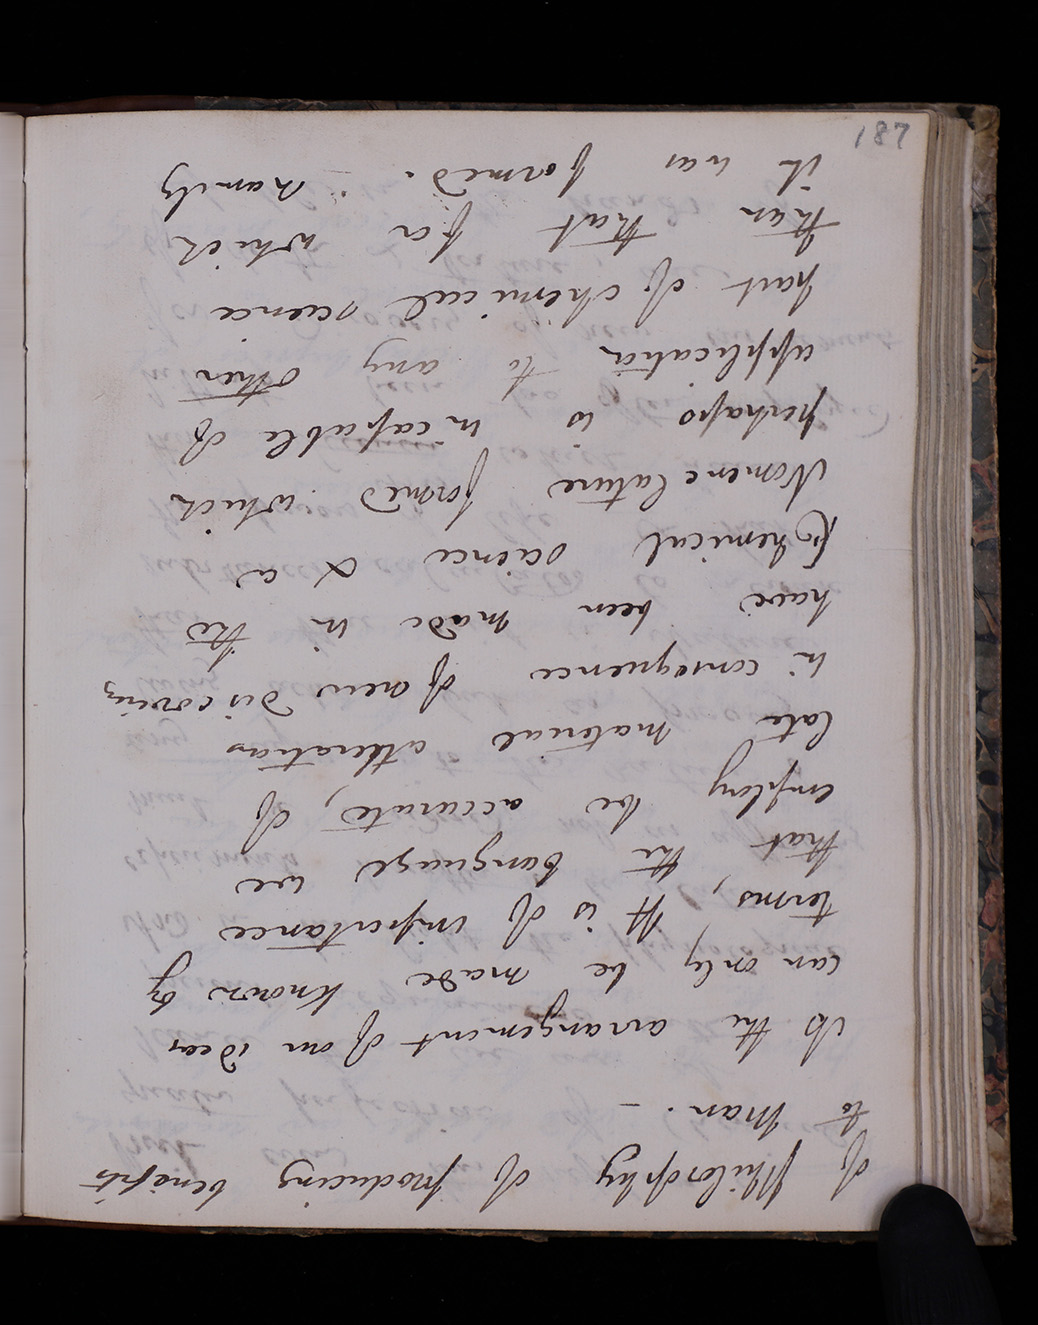 of Philosophy of producing benefits
to Man. —
As the arrangement of our ideas
can only be made known by
terms, It is of importance
that the language we
employ be accurate, of
late material alterations
in consequence of new discoveries
have been made in the
Chemical science & a
Nomenclature formed which
perhaps is incapable of
application to any other
part of chemical science
than that for which
it was formed. — namely
187